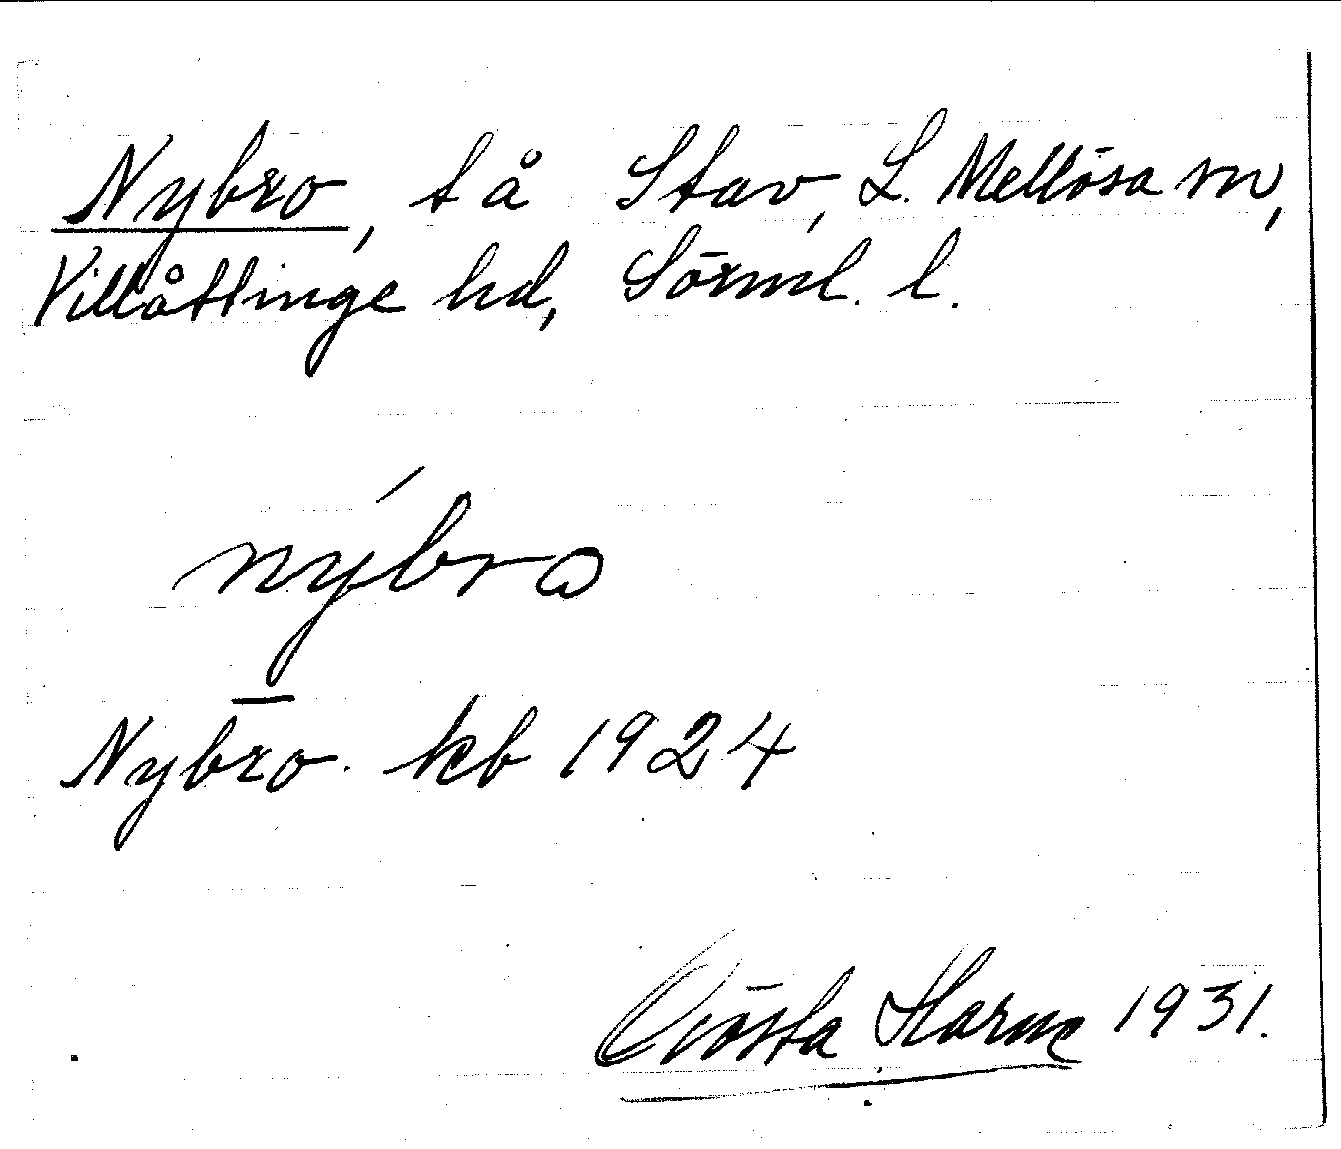 Nybro, t å Stav, L. Mellösa sn,
Villåttinge hd, Sörml. l.
nýbro
Nybro. kb 1924
Gösta Harme 1931.